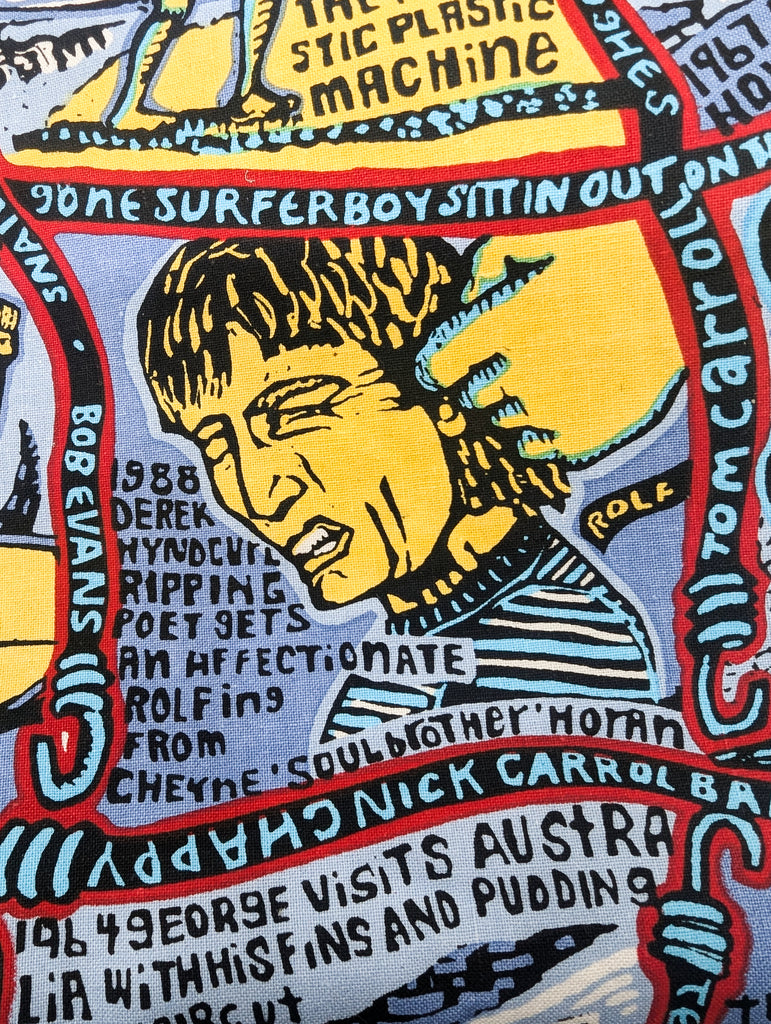 STIC PLASTIC
MACHINE
GHES
1967
gone SURFERBOY SITTIN OUT ON
BOB EVANS
TOM CARROLL
ROLF
1988
DEREK
HYND
RIPPING
POET gETS
AN AFFECTIONATE
ROLFing
FROM
CHEYNE 'SOULbrOTHER' HORAN
CHAPPY
NICK CARROL
1964 gEORgE VISITS AUSTRA
LIA WITH HIS FINS AND PUDDINg